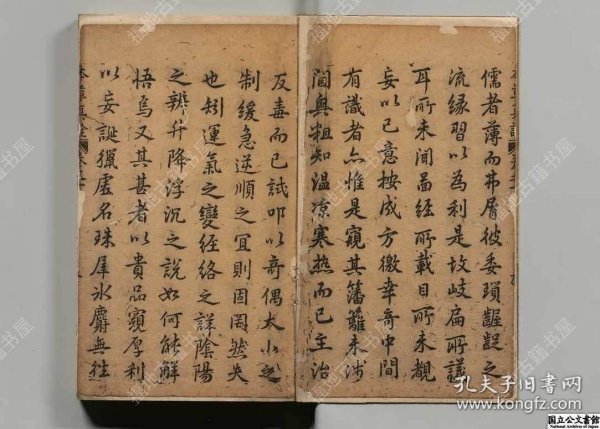 儒者薄而弗屑彼委瑣齷齪之
流緣習以為利是故岐扁所議
耳所未聞啚經所載目所未覩
妄以己意按成方徼幸奇中間
有識者亦惟是窺其藩籬未涉
閫奧粗知温凉寒熱而已主治
反毒而已試叩以奇偶大小之
制緩急逆順之宜則固罔然失
也矧運氣之變經絡之詳陰陽
之辨升降浮沉之說如何能解
悟烏又其甚者以貴品窺厚利
以妄誕獵虛名珠犀氷麝無往
福地古籍书屋
孔夫子旧书网
www.kongfz.com
国立公文書館
National Archives of Japan